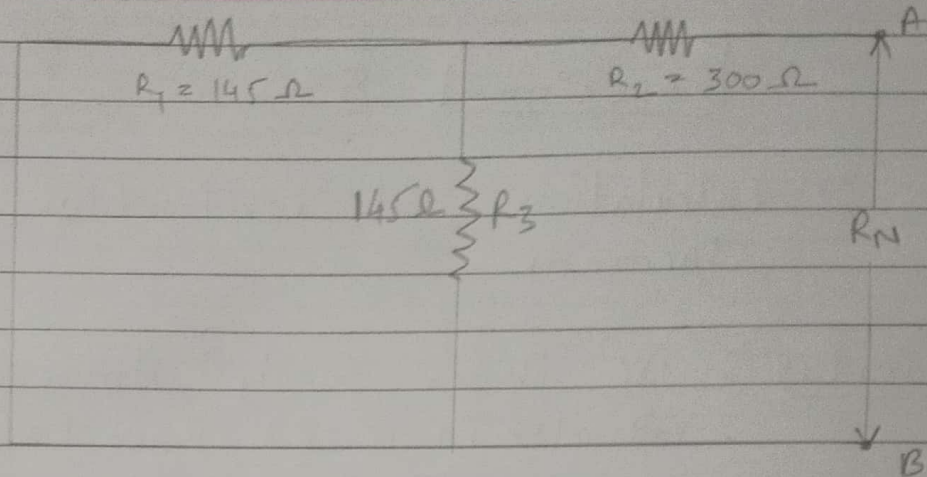 A
R₁ = 145 Ω
R₂ = 300 Ω
145Ω R₃
R_N
B